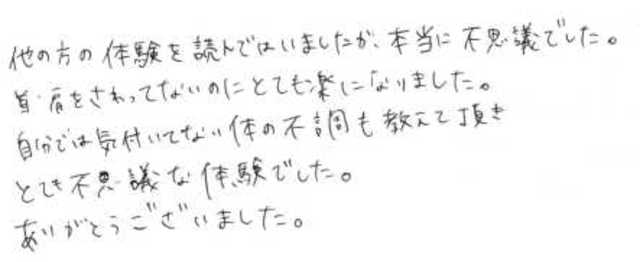 他の方の体験を読んではいましたが、本当に不思議でした。
首・肩をさわってないのにとても楽になりました。
自分では気付いてない体の不調も教えて頂き
とても不思議な体験でした。
ありがとうございました。